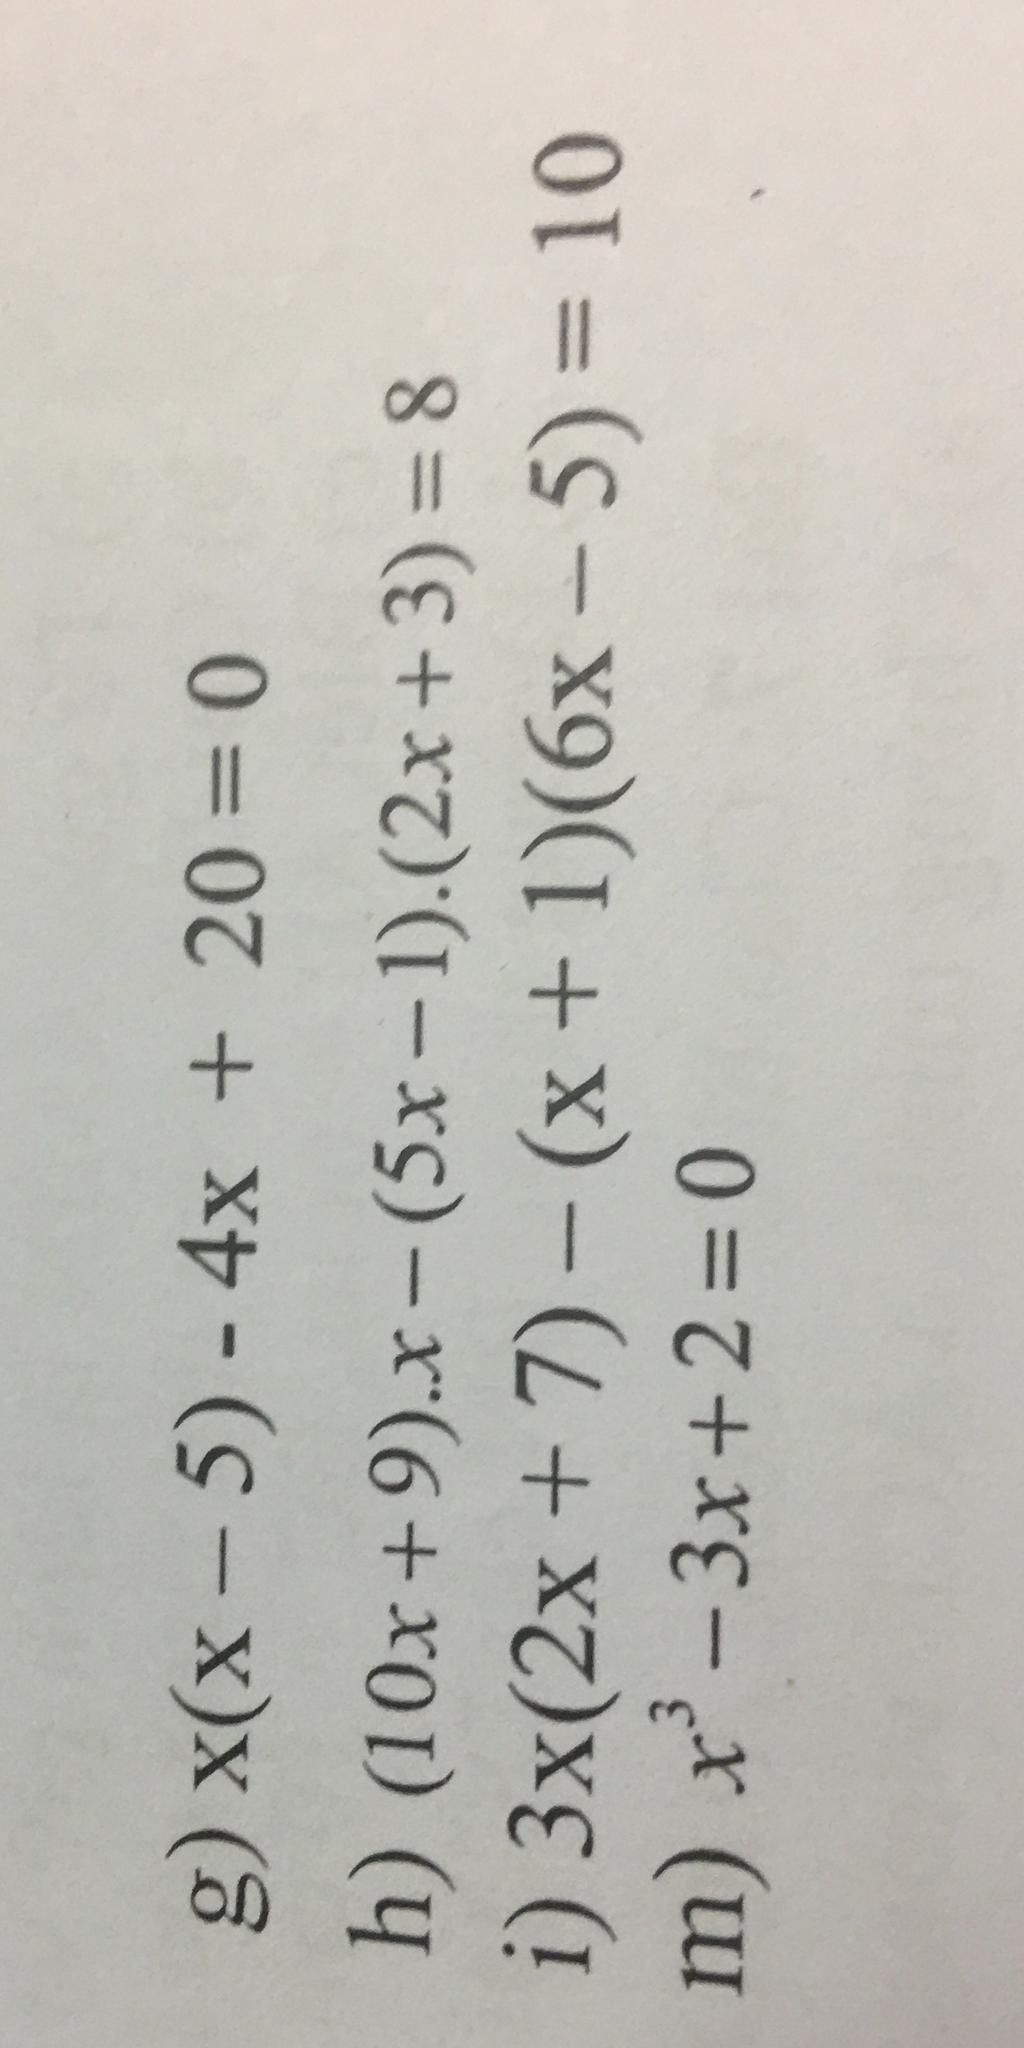 g) x(x – 5) - 4x + 20 = 0
h) (10x + 9)..x – (5x – 1).(2x + 3) = 8
i) 3x(2x + 7) – (x + 1)(6x – 5) = 10
m) x³ – 3x + 2 = 0